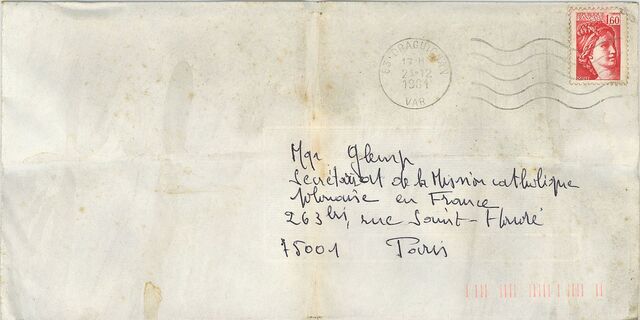 1,60
83 DRAGUIGNAN
17 H
21-12
1981
VAR
Mgr Glemp
Secrétariat de la Mission catholique
polonaise en France
263 bis, rue Saint-Honoré
75001 Paris